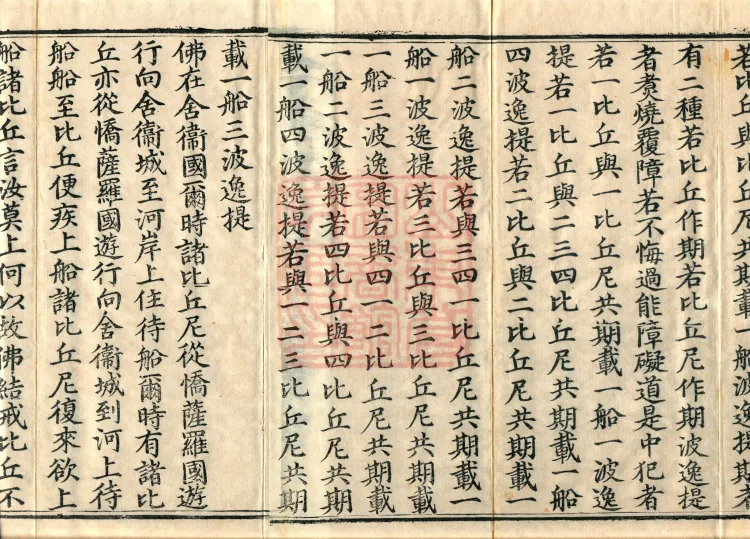 若比丘與比丘尼共期載一船波逸提期者
有二種若比丘作期若比丘尼作期波逸提
者煑燒覆障若不悔過能障礙道是中犯者
若一比丘與一比丘尼共期載一船一波逸
提若一比丘與二三四比丘尼共期載一船
四波逸提若二比丘與二比丘尼共期載一
船二波逸提若與三四一比丘尼共期載一
船一波逸提若三比丘與三比丘尼共期載
一船三波逸提若與四一二比丘尼共期載
一船二波逸提若四比丘與四比丘尼共期
載一船四波逸提若與一二三比丘尼共期
載一船三波逸提
佛在舍衞國爾時諸比丘尼從憍薩羅國遊
行向舍衞城至河岸上住待船爾時有諸比
丘亦從憍薩羅國遊行向舍衞城到河上待
船船至比丘便疾上船諸比丘尼復來欲上
船諸比丘言汝莫上何以故佛結戒比丘不